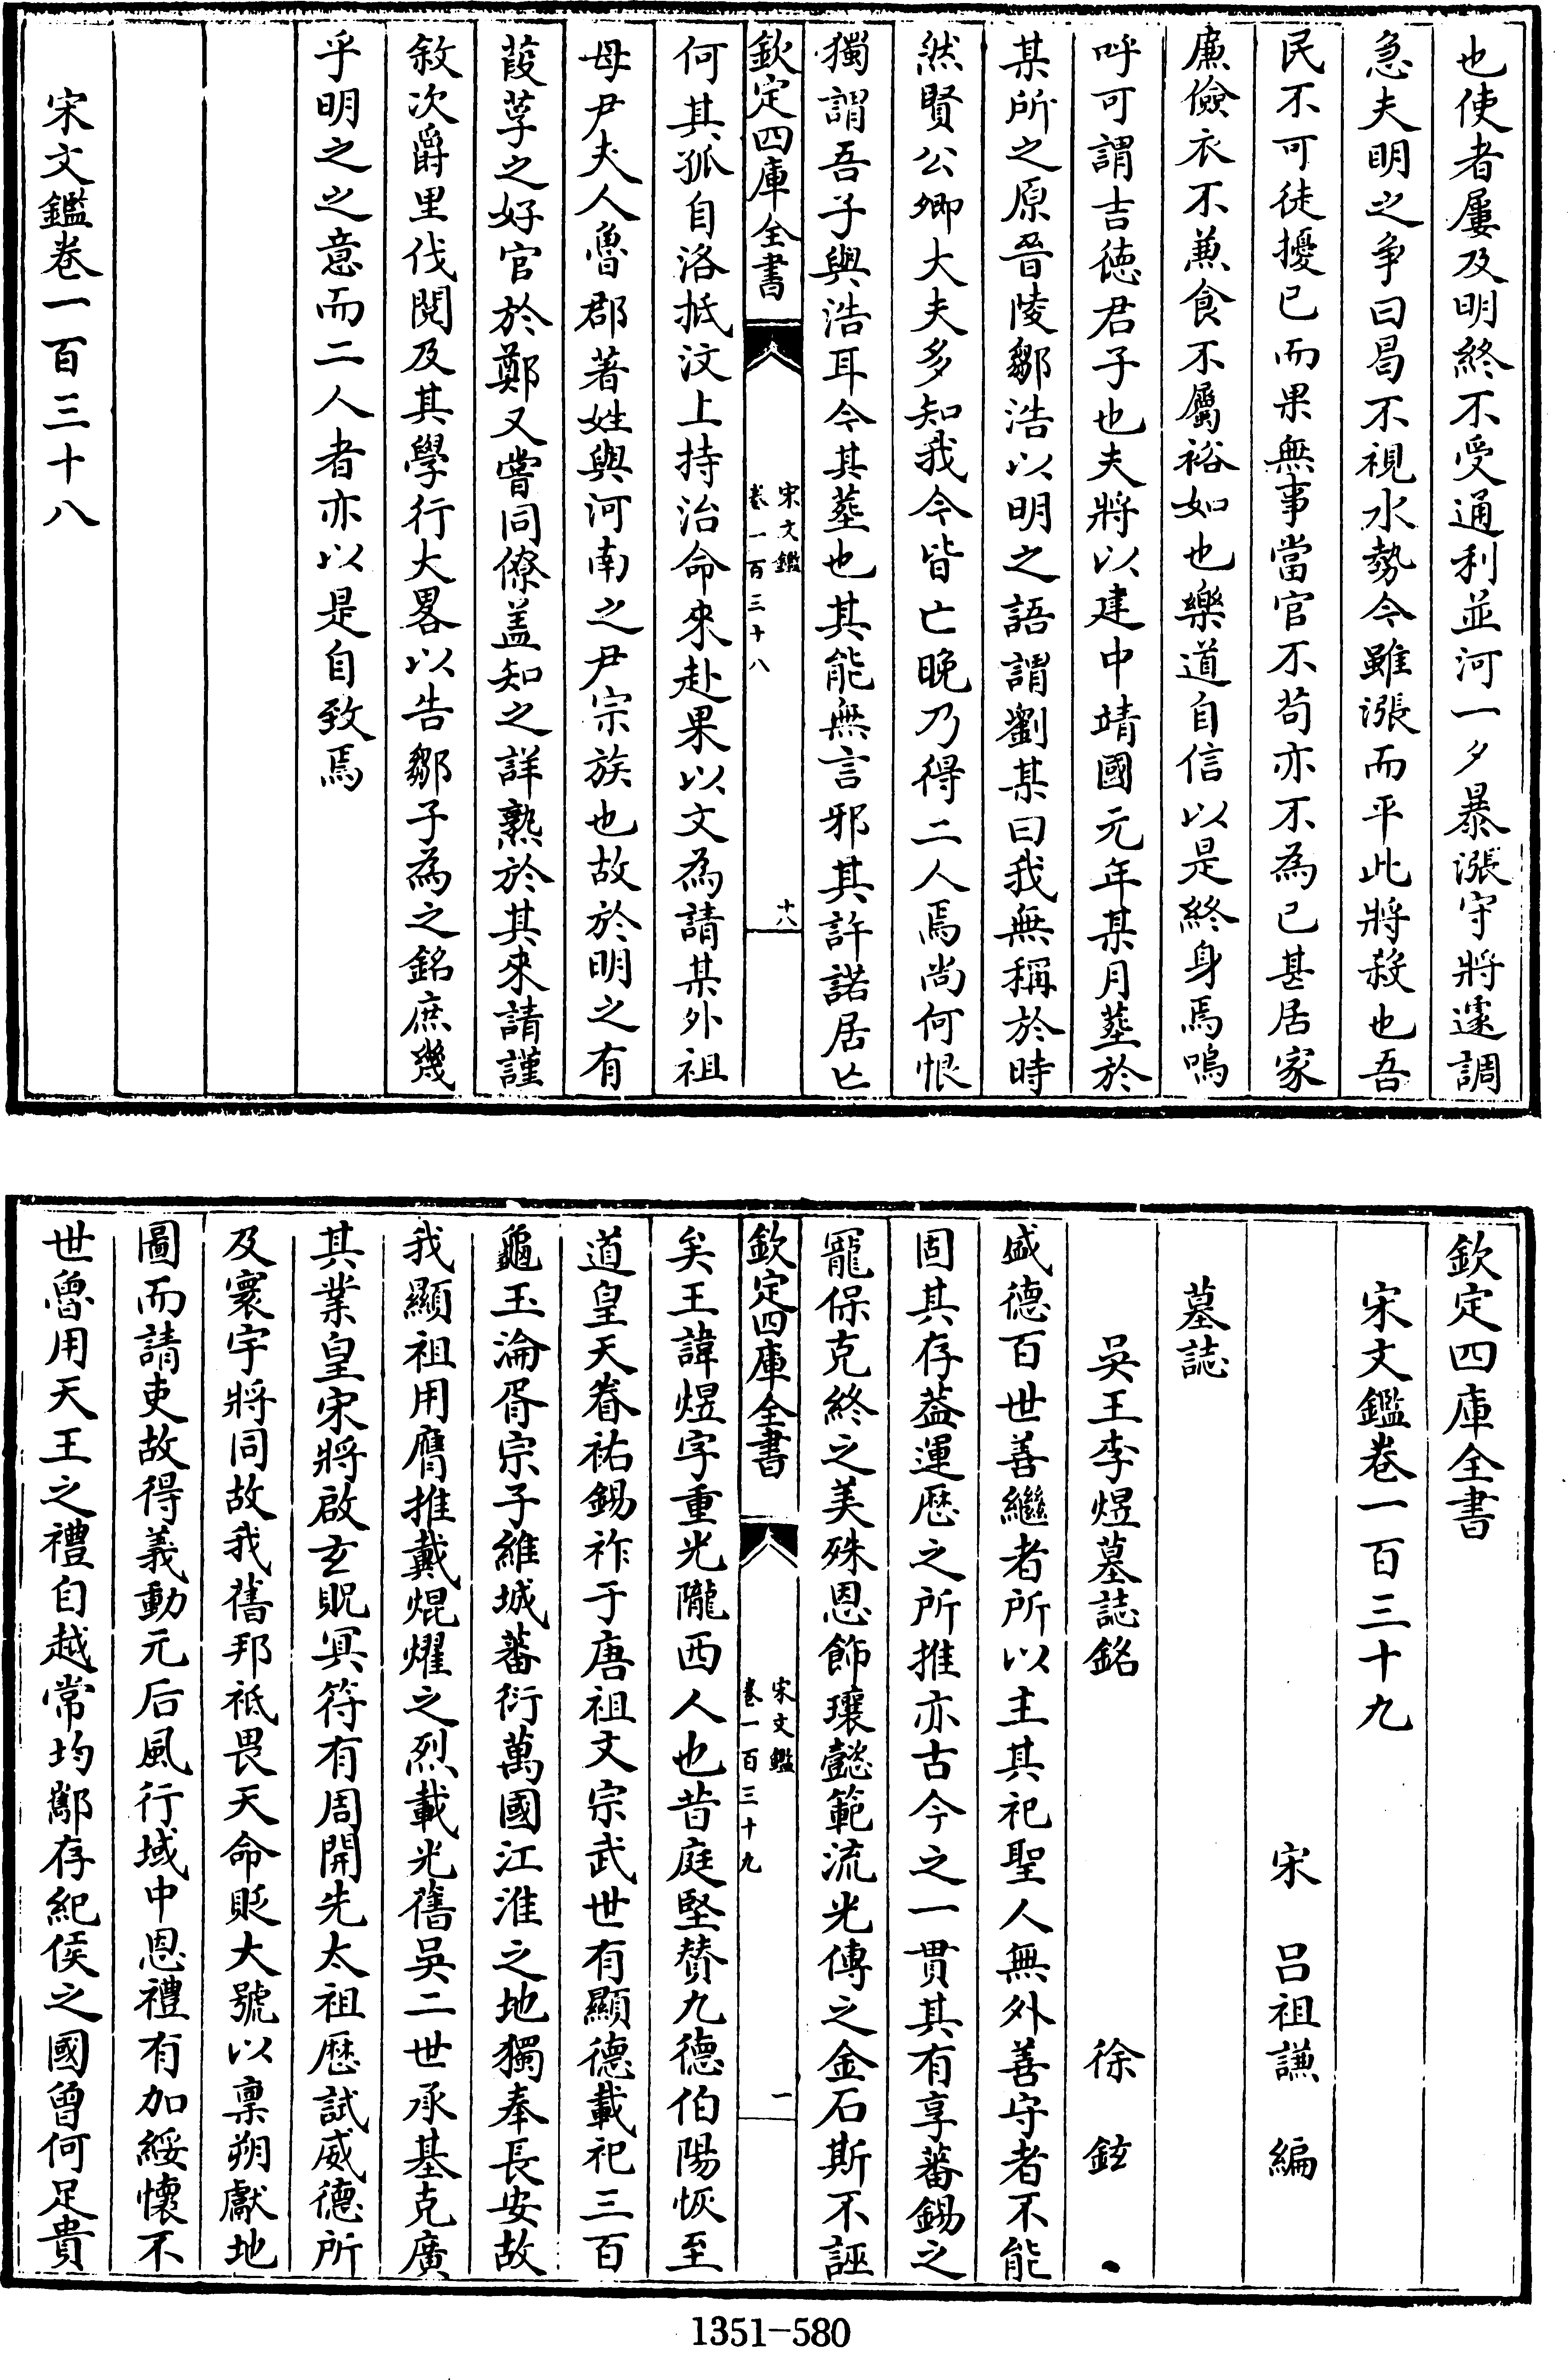 也使者屢及明終不受通利並河一夕暴漲守將遽調
急夫明之爭曰曷不視水勢今雖漲而平此將殺也吾
民不可徒擾已而果無事當官不苟亦不為已甚居家
廉儉衣不兼食不屬裕如也樂道自信以是終身焉嗚
呼可謂吉徳君子也夫將以建中靖國元年某月塟於
某所之原晉陵鄒浩以明之語謂劉某曰我無稱於時
然賢公卿大夫多知我今皆亡晚乃得二人焉尚何恨
獨謂吾子與浩耳今其塟也其能無言邪其許諾居亡
欽定四庫全書
宋文鑑
卷一百三十八
十八
何其孤自洛抵汶上持治命來赴果以文為請某外祖
母尹夫人魯郡著姓與河南之尹宗族也故於明之有
葭莩之好官於鄭又嘗同僚盖知之詳熟於其來請謹
敘次爵里伐閲及其學行大畧以告鄒子為之銘庶幾
乎明之之意而二人者亦以是自致焉
宋文鑑卷一百三十八
欽定四庫全書
宋文鑑卷一百三十九
宋 吕祖謙 編
墓誌
吳王李煜墓誌銘 徐鉉
盛德百世善繼者所以主其祀聖人無外善守者不能
固其存葢運歴之所推亦古今之一貫其有享蕃錫之
寵保克終之美殊恩飾壤懿範流光傳之金石斯不誣
欽定四庫全書
宋文鑑
卷一百三十九
一
矣王諱煜字重光隴西人也昔庭堅賛九德伯陽恢至
道皇天眷祐錫祚于唐祖文宗武世有顯德載祀三百
龜玉淪胥宗子維城蕃衍萬國江淮之地獨奉長安故
我顯祖用膺推戴焜燿之烈載光舊吳二世承基克廣
其業皇宋將啟玄貺冥符有周開先太祖歴試威德所
及寰宇將同故我舊邦祗畏天命貶大號以禀朔獻地
圖而請吏故得義動元后風行域中恩禮有加綏懷不
世魯用天王之禮自越常均鄫存紀侯之國曾何足貴
1351-580